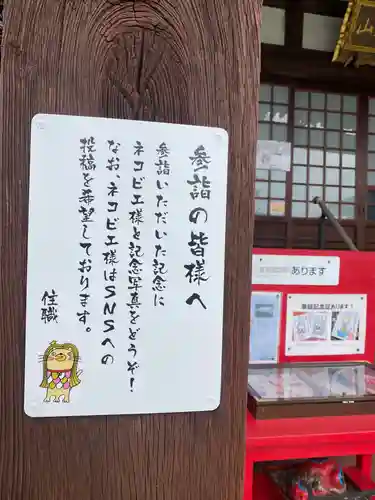 参詣の皆様へ
参詣いただいた記念に
ネコビエ様と記念写真をどうぞ！
なお、ネコビエ様はSNSへの
投稿を希望しております。
住職
山
あります